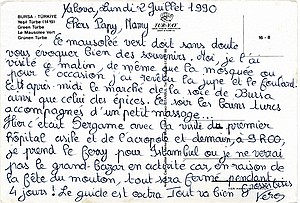 Yalova, Lundi 2 Juillet 1990
BURSA - TÜRKİYE
Yeşil Türbe (1419)
Green Turbe
Le Mausolée Vert
Grünen Turbe
16 - 8
Chers Papy, Mamy
Le mausolée vert doit sans doute
vous évoquer bien des souvenirs. Moi, je l'ai
visité ce matin, de même que la mosquée ou
pour l'occasion j'ai revêtu la jupe et le foulard.
L'après-midi le marché de la soie de Bursa
ainsi que celui des épices. Le soir les bains turcs
accompagnés d'un petit massage...
Hier c'était Pergame avec la visite du premier
hôpital asile et de l'acropole et demain, à 8H00,
je prend le ferry pour Istambul où je ne verrai
pas le grand bazar en activité car, en raison de
la fête du mouton, tout sera fermé pendant
4 jours! Le guide est extra Tout va bien
Grosses bises
Véro